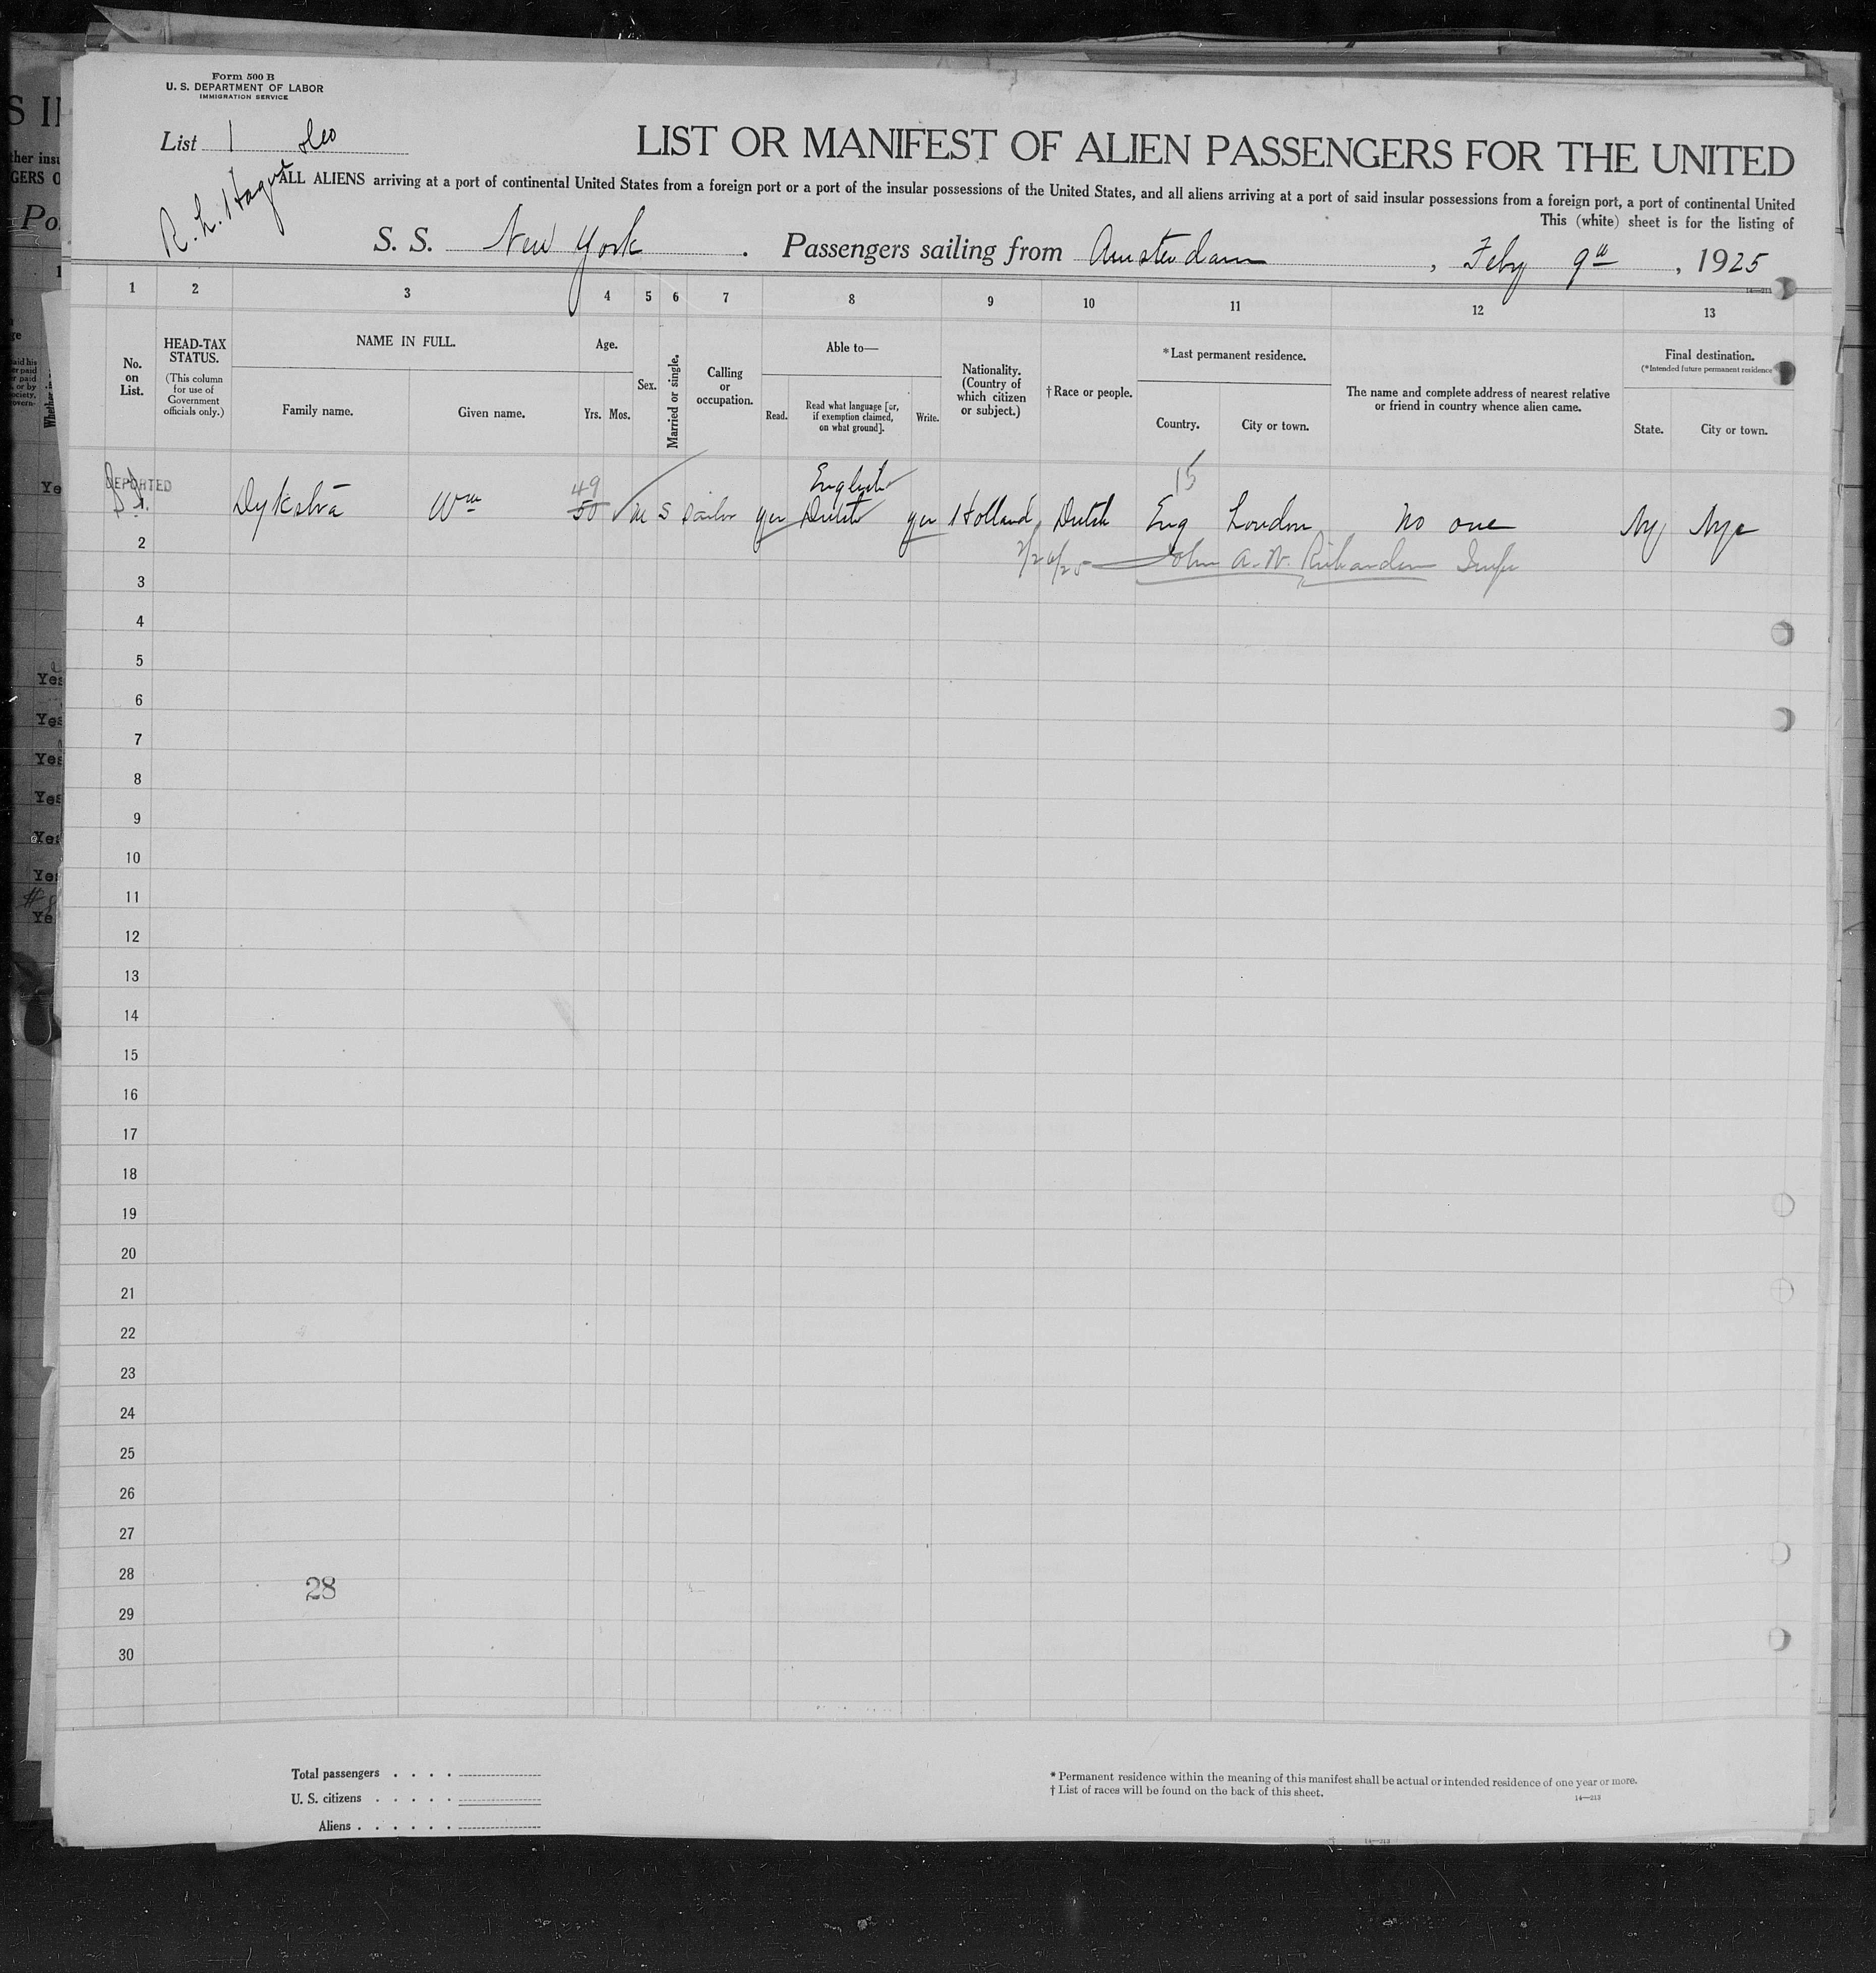 Form 500 B
U. S. DEPARTMENT OF LABOR
IMMIGRATION SERVICE
List 1
R. L. Hague
LIST OR MANIFEST OF ALIEN PASSENGERS FOR THE UNITED
ALL ALIENS arriving at a port of continental United States from a foreign port or a port of the insular possessions of the United States, and all aliens arriving at a port of said insular possessions from a foreign port, a port of continental United
This (white) sheet is for the listing of
S. S. New York. Passengers sailing from Amsterdam, Feby 9th, 1925
14—213
1 2 3 4 5 6 7 8 9 10 11 12 13
No. on List.
HEAD-TAX STATUS.
(This column for use of Government officials only.)
NAME IN FULL.
Family name.
Given name.
Age.
Yrs. Mos.
Sex.
Married or single.
Calling or occupation.
Able to—
Read.
Read what language [or, if exemption claimed, on what ground].
Write.
Nationality. (Country of which citizen or subject.)
† Race or people.
*Last permanent residence.
Country.
City or town.
The name and complete address of nearest relative or friend in country whence alien came.
Final destination.
(*Intended future permanent residence
State.
City or town.
DEPORTED
49 English 15
1 Dykstra Wm 50 M S Sailor yes Dutch yes Holland Dutch Eng London No one Ny Nyc
2 2/26/25 John A. W. Richardson Insp
3
4
5
6
7
8
9
10
11
12
13
14
15
16
17
18
19
20
21
22
23
24
25
26
27
28
28
29
30
Total passengers . . . .
U. S. citizens . . . . .
Aliens . . . . . .
* Permanent residence within the meaning of this manifest shall be actual or intended residence of one year or more.
† List of races will be found on the back of this sheet.
14—213